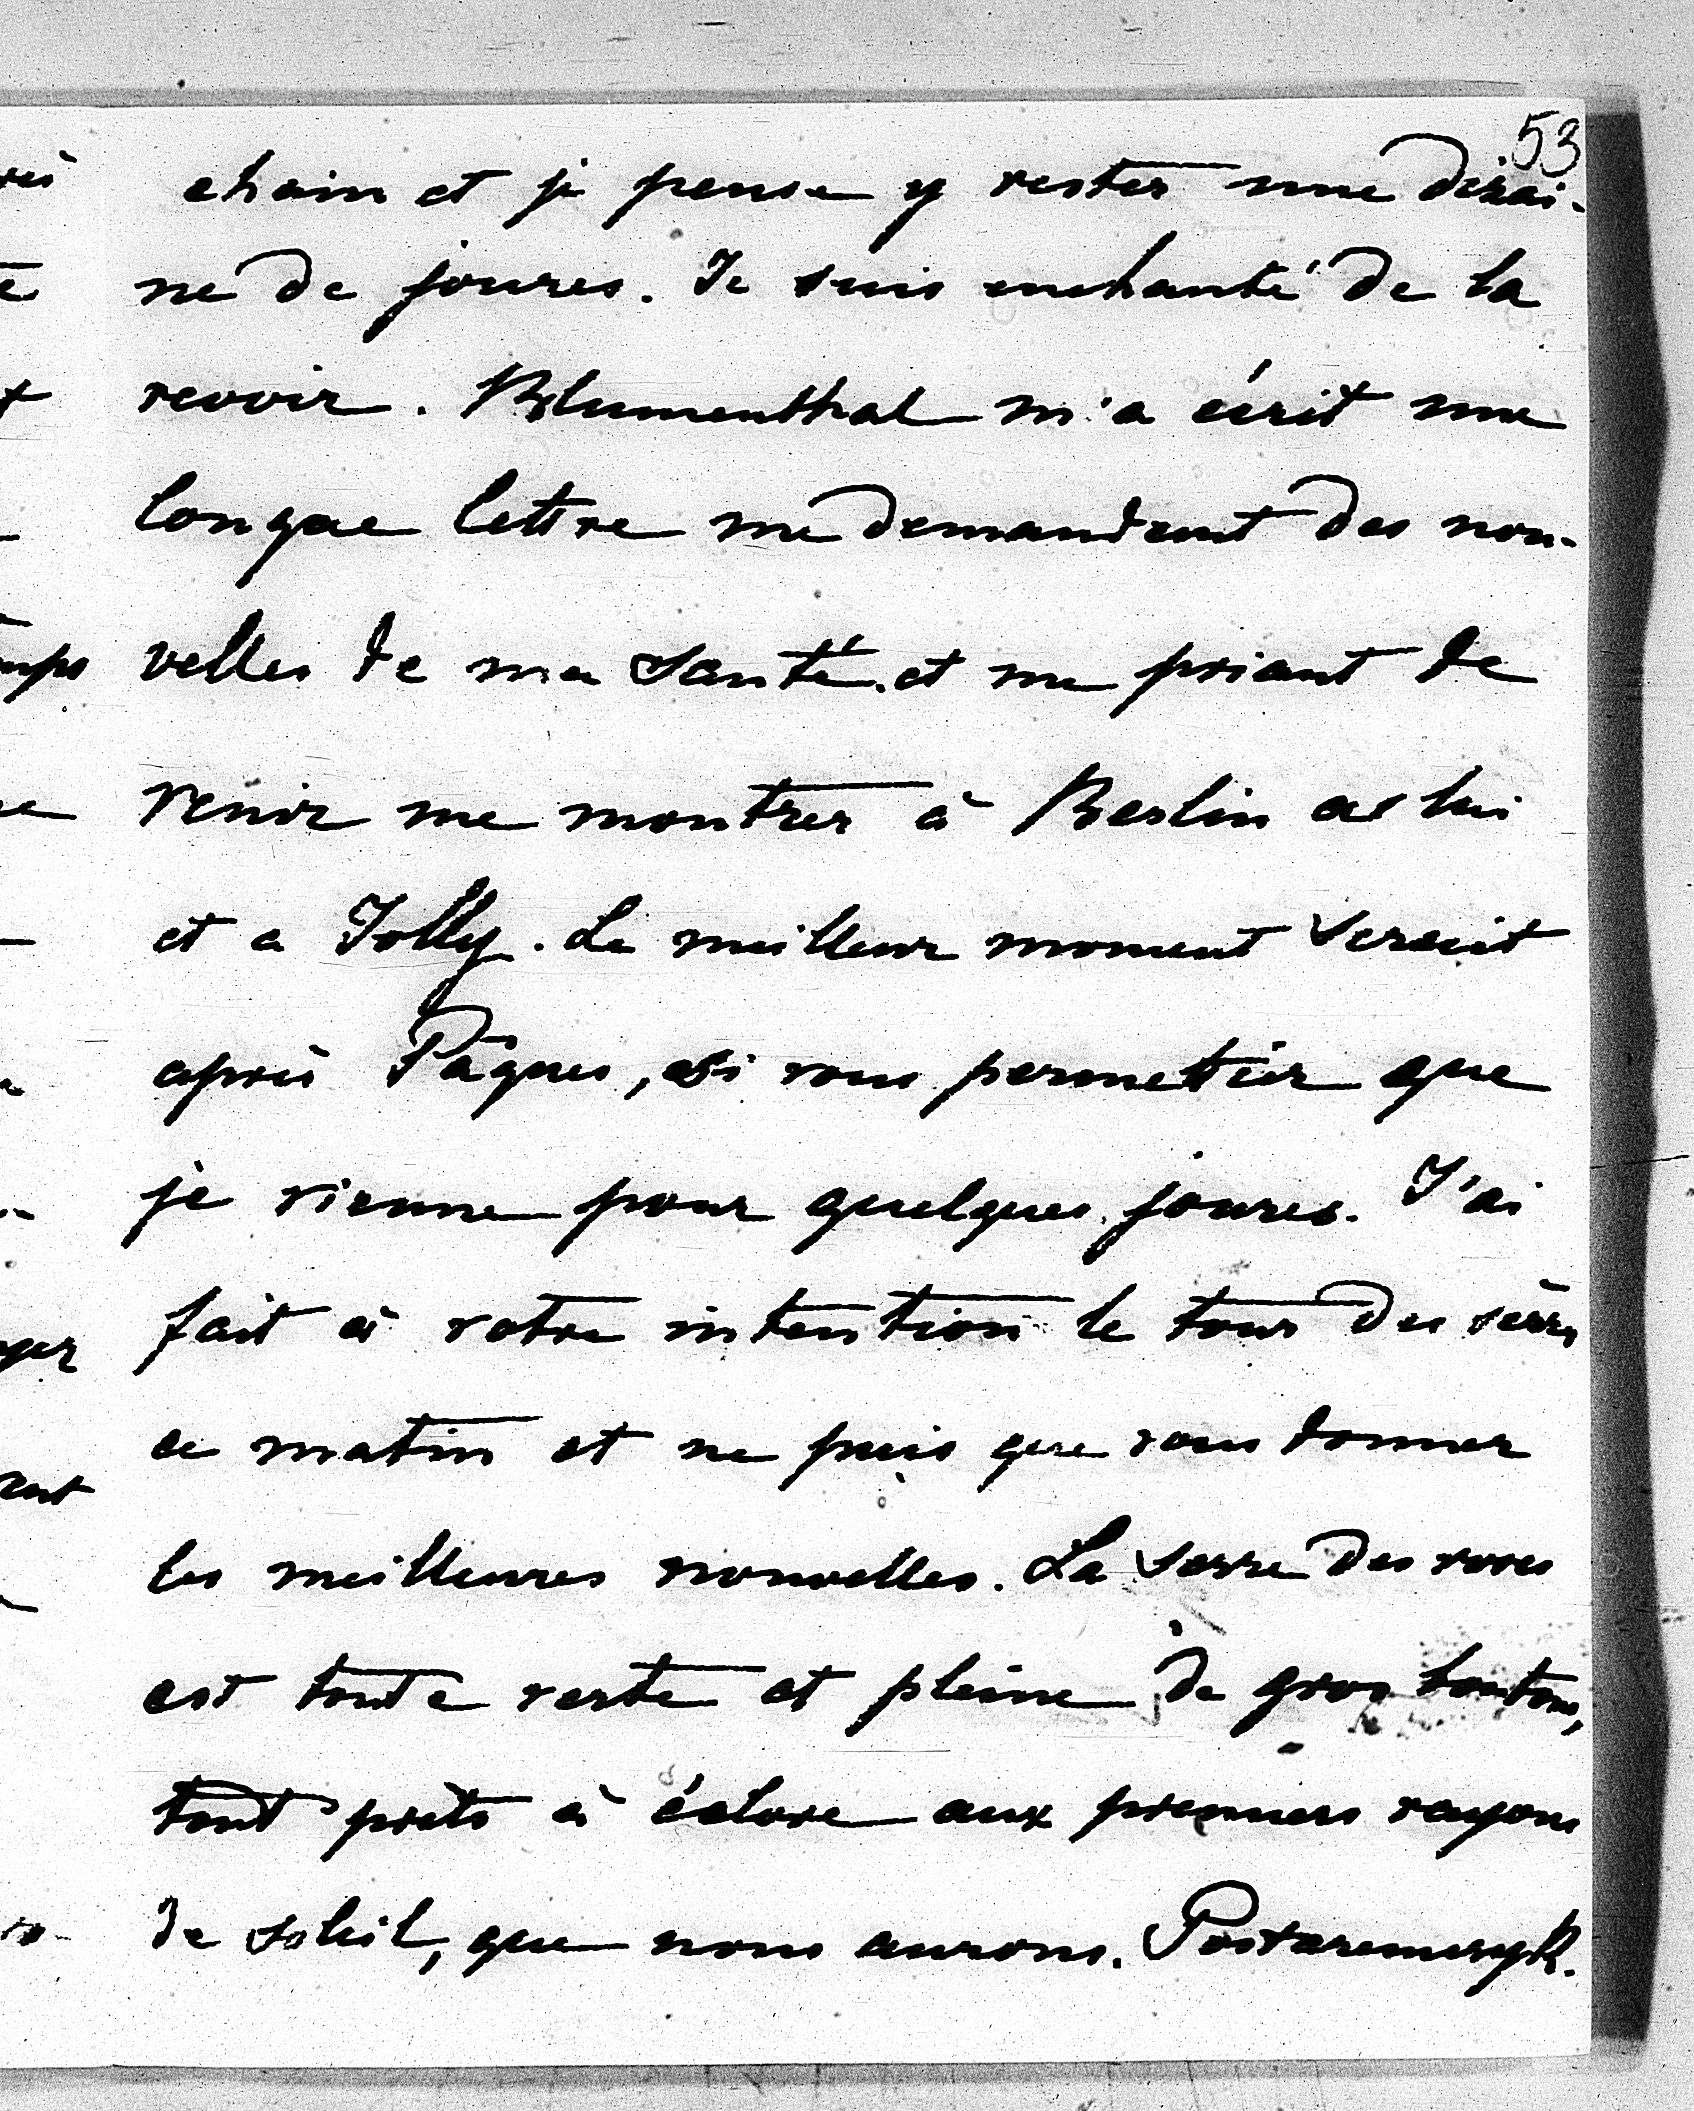 53
chain et je pense y rester une dizai-
ne de joures. Je suis enchanté de la
revoir. Blumenthal m'a écrit une
longue lettre me demandant des nou-
velles de ma santé et me priant de
venir me montrer à Berlin à lui
et a Jolly. Le meilleur moment serait
après Pâques, si vous permetiez que
je vienne pour quelques joures. J'ai
fait à votre intention le tour des sèrres
ce matin et ne puis que vous donner
les meilleures nouvelles. La serre des roses
est toute verte et pleine de gros boutons,
tout prèts à éclore aux premiers rayons
de soleil, que nous aurons.